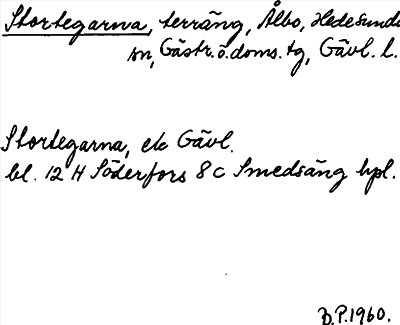 Stortegarna, terräng, Ålbo, Hedesunda
sn, Gästr. ö. doms. tg, Gävl. l.
Stortegarna, ek Gävl.
bl. 12 H Söderfors 8 c Smedsäng hpl.
B.P. 1960.